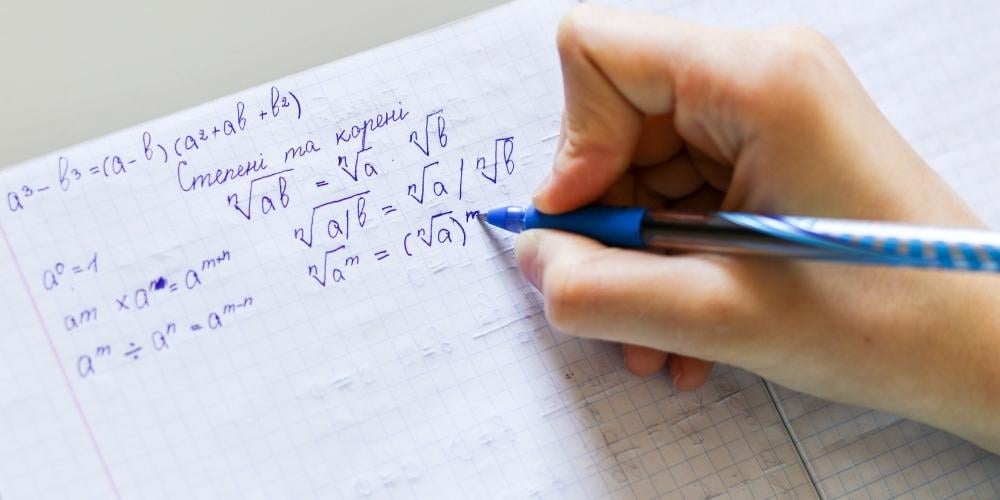 a³ - b³ = (a - b) (a² + ab + b²)
Степені та корені
ⁿ√ab = ⁿ√a · ⁿ√b
ⁿ√a/b = ⁿ√a / ⁿ√b
ⁿ√aᵐ = (ⁿ√a)ᵐ
a⁰ = 1
aᵐ × aⁿ = aᵐ⁺ⁿ
aᵐ ÷ aⁿ = aᵐ⁻ⁿ